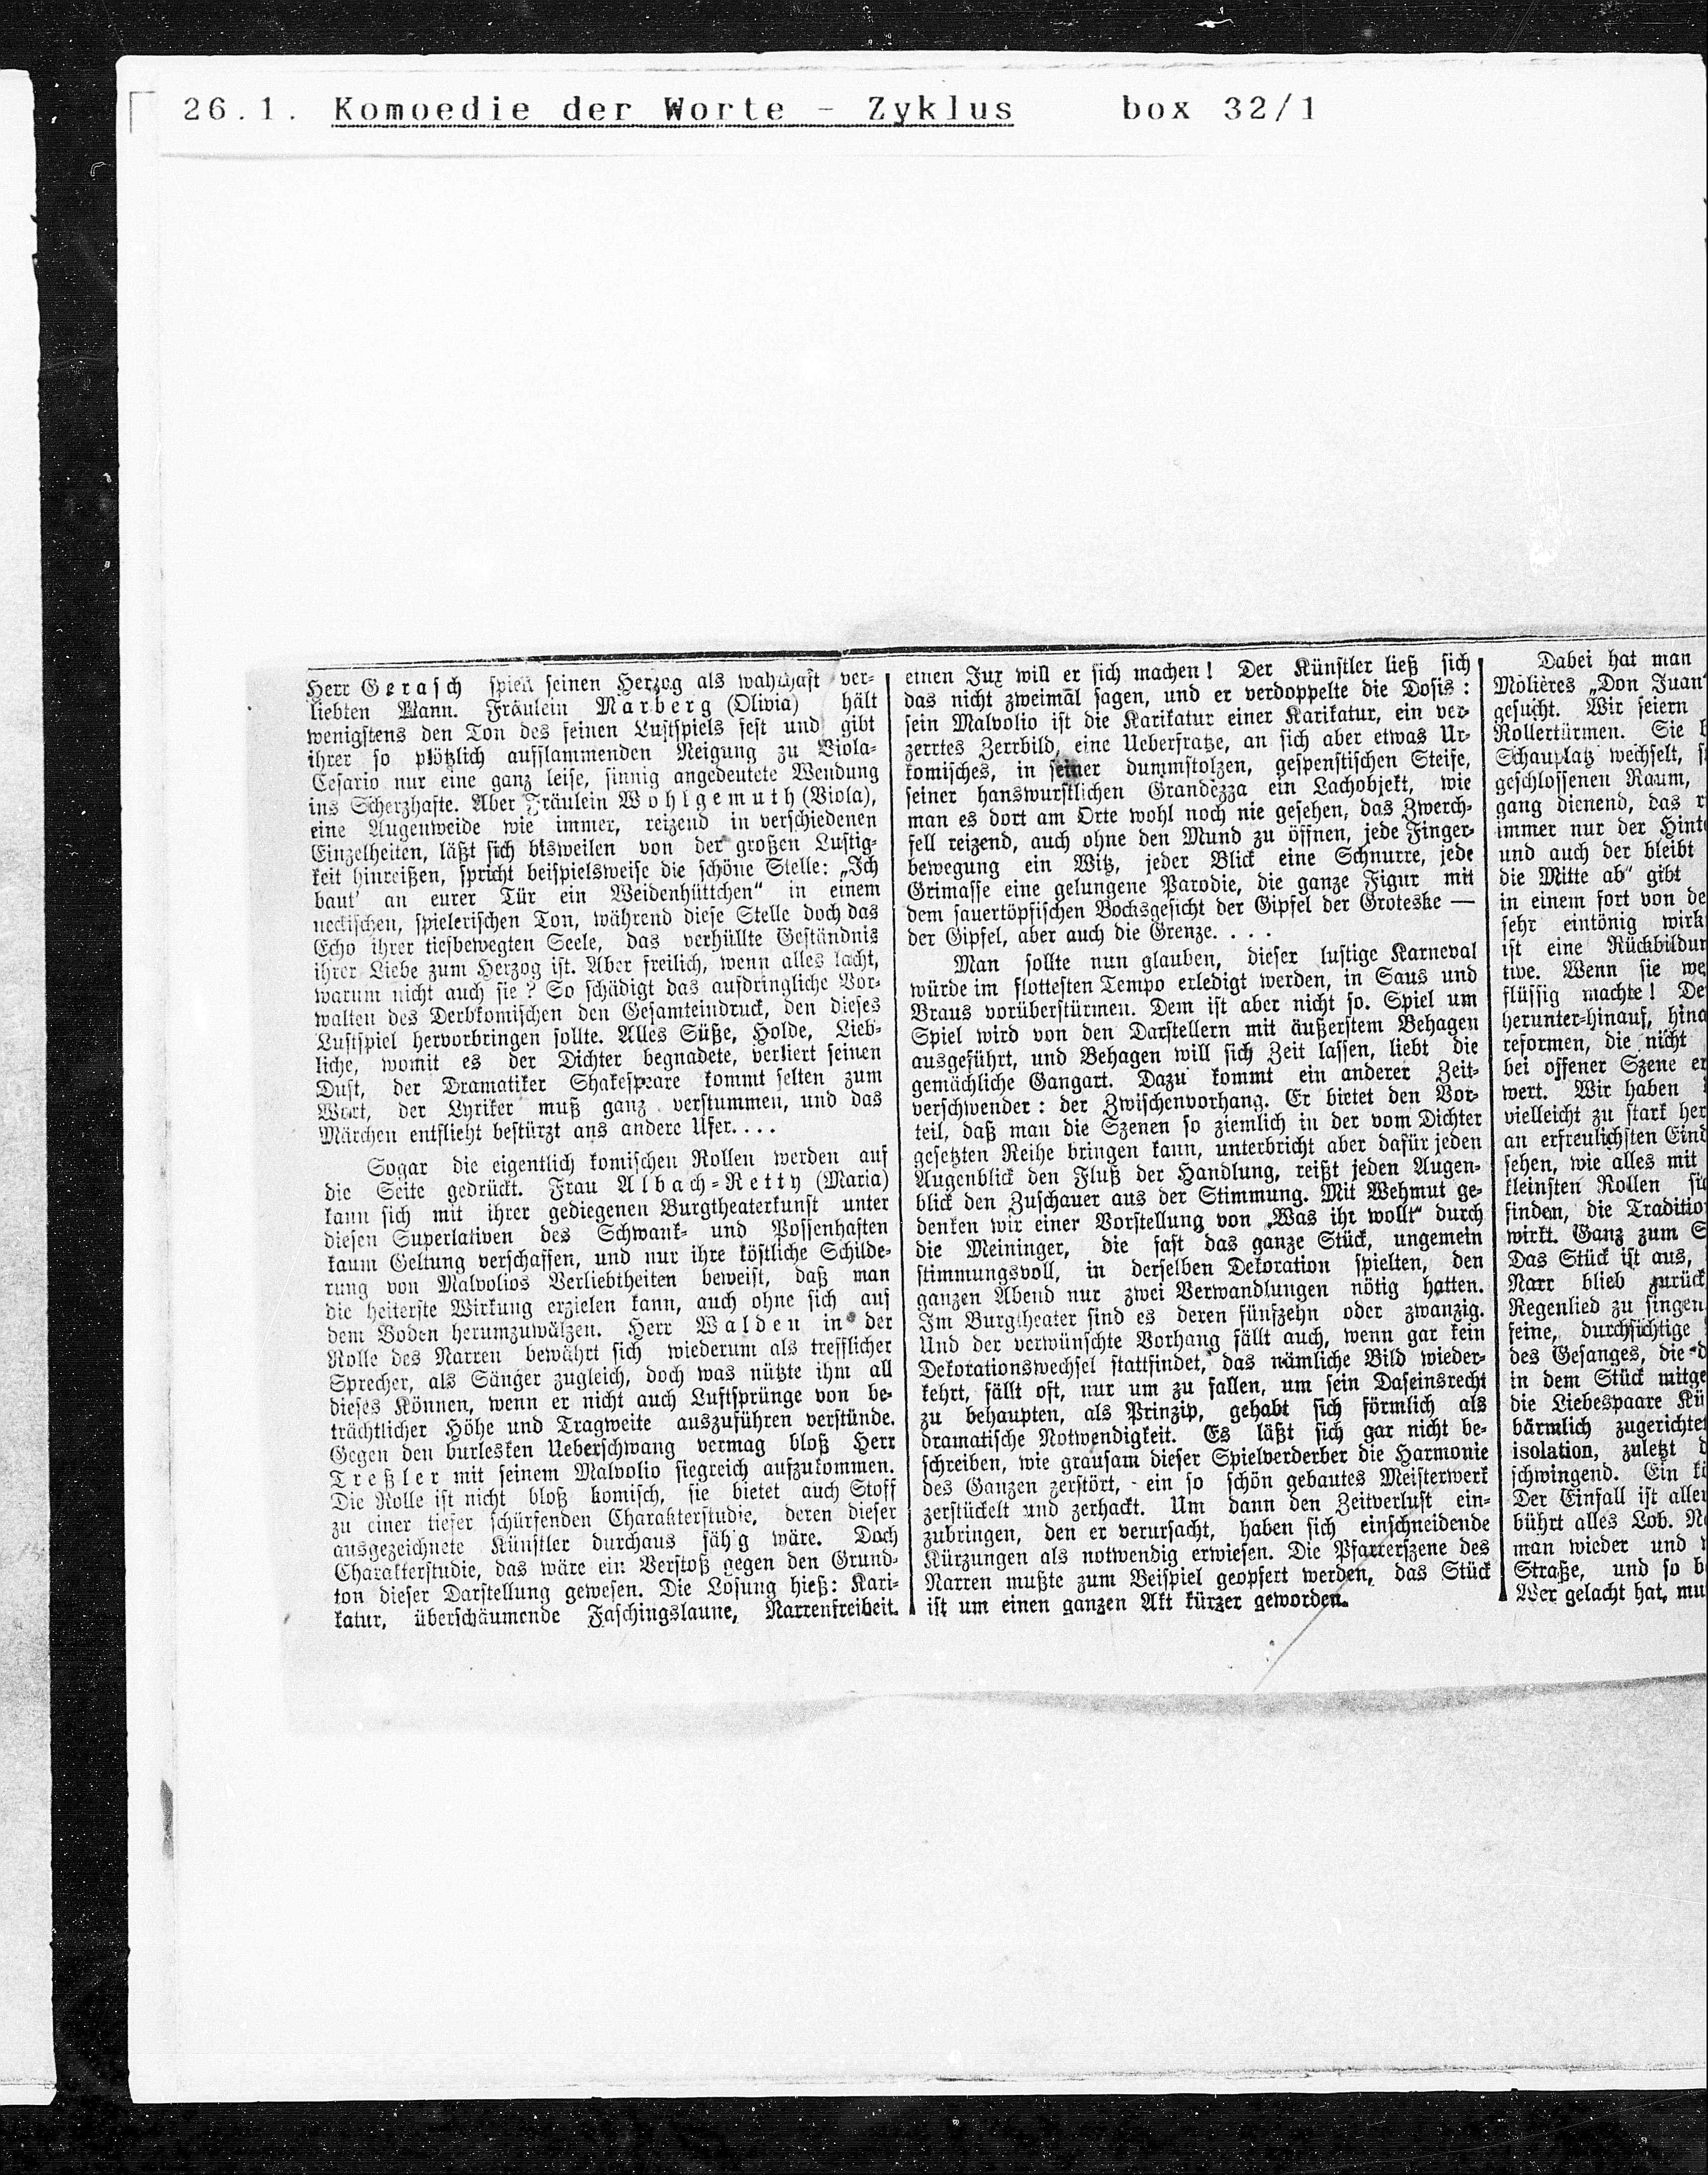 26.1. Komoedie der Worte - Zyklus box 32/1
Herr Gerasch spielt seinen Herzog als wahrhaft ver-
liebten Mann. Fräulein Marberg (Olivia) hält
wenigstens den Ton des feinen Lustspiels fest und gibt
ihrer so plötzlich aufflammenden Neigung zu Viola-
Cesario nur eine ganz leise, sinnig angedeutete Wendung
ins Scherzhafte. Aber Fräulein Wohlgemuth (Viola),
eine Augenweide wie immer, reizend in verschiedenen
Einzelheiten, läßt sich bisweilen von der großen Lustig-
keit hinreißen, spricht beispielsweise die schöne Stelle: „Ich
baut' an eurer Tür ein Weidenhüttchen“ in einem
neckischen, spielerischen Ton, während diese Stelle doch das
Echo ihrer tiefbewegten Seele, das verhüllte Geständnis
ihrer Liebe zum Herzog ist. Aber freilich, wenn alles lacht,
warum nicht auch sie? So schädigt das aufdringliche Vor-
walten des Derbkomischen den Gesamteindruck, den dieses
Lustspiel hervorbringen sollte. Alles Süße, Holde, Lieb-
liche, womit es der Dichter begnadete, verliert seinen
Duft, der Dramatiker Shakespeare kommt selten zum
Wort, der Lyriker muß ganz verstummen, und das
Märchen entflieht bestürzt ans andere Ufer....
Sogar die eigentlich komischen Rollen werden auf
die Seite gedrückt. Frau Albach-Retty (Maria)
kann sich mit ihrer gediegenen Burgtheaterkunst unter
diesen Superlativen des Schwank- und Possenhaften
kaum Geltung verschaffen, und nur ihre köstliche Schilde-
rung von Malvolios Verliebtheiten beweist, daß man
die heiterste Wirkung erzielen kann, auch ohne sich auf
dem Boden herumzuwälzen. Herr Walden in der
Rolle des Narren bewährt sich wiederum als trefflicher
Sprecher, als Sänger zugleich, doch was nützte ihm all
dieses Können, wenn er nicht auch Luftsprünge von be-
trächtlicher Höhe und Tragweite auszuführen verstünde.
Gegen den burlesken Ueberschwang vermag bloß Herr
Treßler mit seinem Malvolio siegreich aufzukommen.
Die Rolle ist nicht bloß komisch, sie bietet auch Stoff
zu einer tiefer schürfenden Charakterstudie, deren dieser
ausgezeichnete Künstler durchaus fähig wäre. Doch
Charakterstudie, das wäre ein Verstoß gegen den Grund-
ton dieser Darstellung gewesen. Die Losung hieß: Kari-
katur, überschäumende Faschingslaune, Narrenfreiheit.
einen Jux will er sich machen! Der Künstler ließ sich
das nicht zweimal sagen, und er verdoppelte die Dosis:
sein Malvolio ist die Karikatur einer Karikatur, ein ver-
zerrtes Zerrbild, eine Ueberfratze, an sich aber etwas Ur-
komisches, in seiner dummstolzen, gespenstischen Steife,
seiner hanswurstlichen Grandezza ein Lachobjekt, wie
man es dort am Orte wohl noch nie gesehen, das Zwerch-
fell reizend, auch ohne den Mund zu öffnen, jede Finger-
bewegung ein Witz, jeder Blick eine Schnurre, jede
Grimasse eine gelungene Parodie, die ganze Figur mit
dem sauertöpfischen Bocksgesicht der Gipfel der Groteske —
der Gipfel, aber auch die Grenze....
Man sollte nun glauben, dieser lustige Karneval
würde im flottesten Tempo erledigt werden, in Saus und
Braus vorüberstürmen. Dem ist aber nicht so. Spiel um
Spiel wird von den Darstellern mit äußerstem Behagen
ausgeführt, und Behagen will sich Zeit lassen, liebt die
gemächliche Gangart. Dazu kommt ein anderer Zeit-
verschwender: der Zwischenvorhang. Er bietet den Vor-
teil, daß man die Szenen so ziemlich in der vom Dichter
gesetzten Reihe bringen kann, unterbricht aber dafür jeden
Augenblick den Fluß der Handlung, reißt jeden Augen-
blick den Zuschauer aus der Stimmung. Mit Wehmut ge-
denken wir einer Vorstellung von „Was ihr wollt“ durch
die Meininger, die fast das ganze Stück, ungemein
stimmungsvoll, in derselben Dekoration spielten, den
ganzen Abend nur zwei Verwandlungen nötig hatten.
Im Burgtheater sind es deren fünfzehn oder zwanzig.
Und der verwünschte Vorhang fällt auch, wenn gar kein
Dekorationswechsel stattfindet, das nämliche Bild wieder-
kehrt, fällt oft, nur um zu fallen, um sein Daseinsrecht
zu behaupten, als Prinzip, gehabt sich förmlich als
dramatische Notwendigkeit. Es läßt sich gar nicht be-
schreiben, wie grausam dieser Spielverderber die Harmonie
des Ganzen zerstört, ein so schön gebautes Meisterwerk
zerstückelt und zerhackt. Um dann den Zeitverlust ein-
zubringen, den er verursacht, haben sich einschneidende
Kürzungen als notwendig erwiesen. Die Pfarrerszene des
Narren mußte zum Beispiel geopfert werden, das Stück
ist um einen ganzen Akt kürzer geworden.
Dabei hat man
Molières „Don Juan“
gesucht. Wir feiern
Rollertürmen. Sie
Schauplatz wechselt,
geschlossenen Raum,
gang dienend, das
immer nur der
und auch der bleibt
die Mitte ab“ gibt
in einem fort von
sehr eintönig
ist eine
tive. Wenn sie
flüssig machte!
herunter-hinauf,
reformen, die nicht
bei offener Szene
wert. Wir haben
vielleicht zu stark
an erfreulichsten
sehen, wie alles mit
kleinsten Rollen
finden, die
wirkt. Ganz zum
Das Stück ist aus,
Narr blieb
Regenlied zu singen.
feine, durchsichtige
des Gesanges, die
in dem Stück
die Liebespaare
bärmlich
isolation, zuletzt
schwingend. Ein
Der Einfall ist
bührt alles Lob.
man wieder und
Straße, und so
Wer gelacht hat,